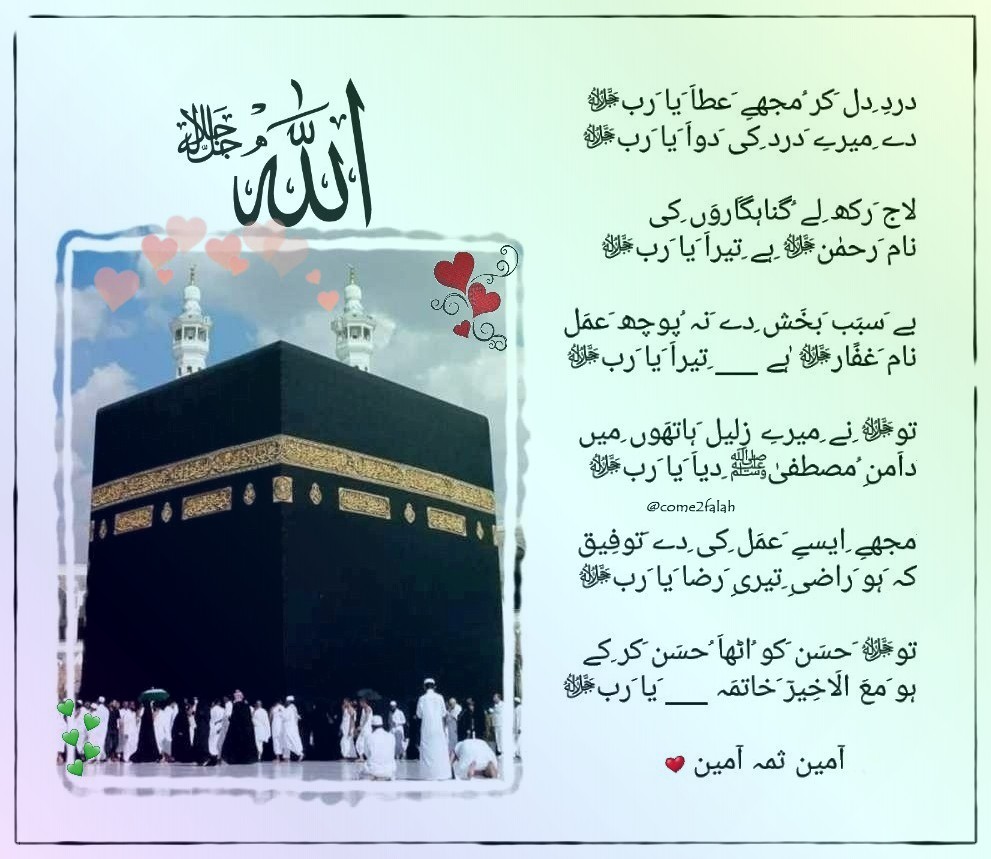 اللهُ جل جلالہ
دردِ دل َکر ُمجھےِ َعطاَ َیا َربﷻ
دے ِمیرےِ َدرد ِکی َدواَ َیا َربﷻ
لاج َرکھ ِلے ُگناہگاَروَں ِکی
نام َرحمٰنﷻ ِہے ِتیراَ َیا َربﷻ
بے َسبَب َبخَش ِدے َنہ ُپوچھ َعمَل
نام َغفّارﷻ ہٰے ___ ِتیراَ َیا َربﷻ
توﷻ ِنے ِمیرے زلِیل َہاتھَوں ِمیں
داَمنِ ُمصطفیٰﷺ ِدیاَ َیا َربﷻ
@come2falah
مجھےِ ِایسےِ َعمَل ِکی ِدے َتوفِیق
کہ َہو َراضیِ ِتیریِ َرضا َیا َربﷻ
توﷻ َحسَن َکو ُاٹھاَ ُحسَن َکر ِکے
ہو َمعَ الَاخِیرَ َخاتمَہ ___ َیا َربﷻ
آمین ثمہ آمین